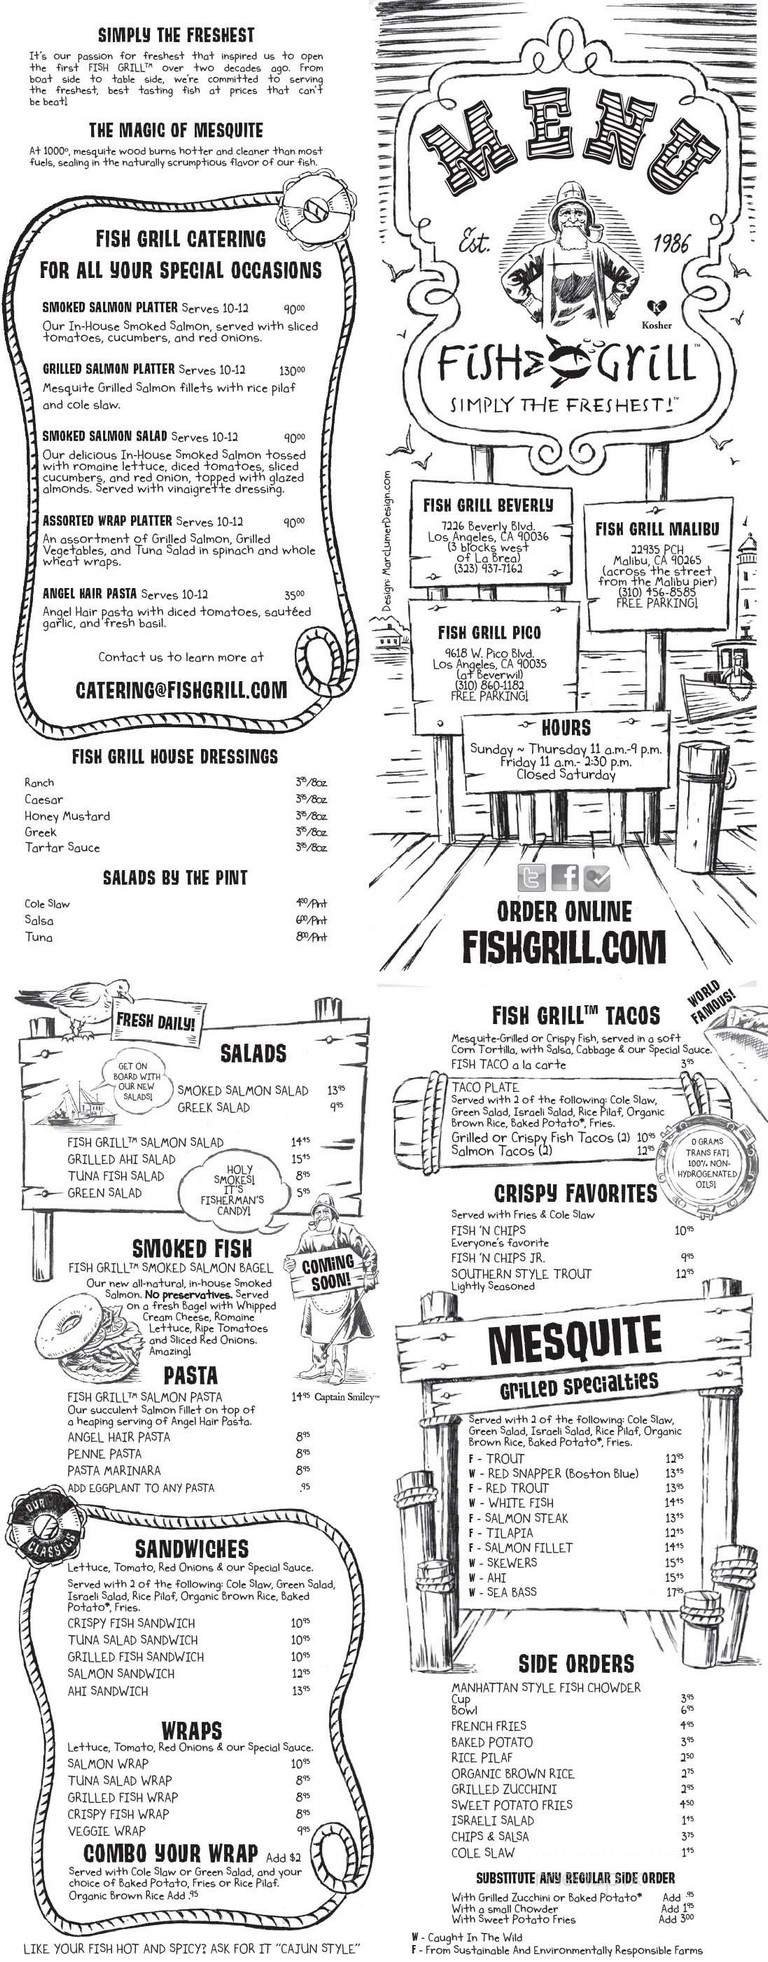 SIMPLY THE FRESHEST
It's our passion for freshest that inspired us to open
the first FISH GRILL™ over two decades ago. From
boat side to table side, we're committed to serving
the freshest, best tasting fish at prices that can't
be beat!
THE MAGIC OF MESQUITE
At 1000°, mesquite wood burns hotter and cleaner than most
fuels, sealing in the naturally scrumptious flavor of our fish.
FISH GRILL CATERING
FOR ALL YOUR SPECIAL OCCASIONS
SMOKED SALMON PLATTER Serves 10-12 9000
Our In-House Smoked Salmon, served with sliced
tomatoes, cucumbers, and red onions.
GRILLED SALMON PLATTER Serves 10-12 13000
Mesquite Grilled Salmon fillets with rice pilaf
and cole slaw.
SMOKED SALMON SALAD Serves 10-12 9000
Our delicious In-House Smoked Salmon tossed
with romaine lettuce, diced tomatoes, sliced
cucumbers, and red onion, topped with glazed
almonds. Served with vinaigrette dressing.
ASSORTED WRAP PLATTER Serves 10-12 9000
An assortment of Grilled Salmon, Grilled
Vegetables, and Tuna Salad in spinach and whole
wheat wraps.
ANGEL HAIR PASTA Serves 10-12 3500
Angel Hair pasta with diced tomatoes, sautéed
garlic, and fresh basil.
Contact us to learn more at
CATERING@FISHGRILL.COM
FISH GRILL HOUSE DRESSINGS
Ranch /8oz
Caesar /8oz
Honey Mustard /8oz
Greek /8oz
Tartar Sauce /8oz
SALADS BY THE PINT
Cole Slaw 400/Pint
Salsa 600/Pint
Tuna 800/Pint
MENU
Est. 1986
K
Kosher
FISH GRILL™
SIMPLY THE FRESHEST!™
Design: MarcLumerDesign.com
FISH GRILL BEVERLY
7226 Beverly Blvd.
Los Angeles, CA 90036
(3 blocks west
of La Brea)
(323) 937-7162
FISH GRILL MALIBU
22935 PCH
Malibu, CA 90265
(across the street
from the Malibu pier)
(310) 456-8585
FREE PARKING!
FISH GRILL PICO
9618 W. Pico Blvd.
Los Angeles, CA 90035
(at Beverwil)
(310) 860-1182
FREE PARKING!
HOURS
Sunday ~ Thursday 11 a.m.-9 p.m.
Friday 11 a.m.- 2:30 p.m.
Closed Saturday
t f
ORDER ONLINE
FISHGRILL.COM
FRESH DAILY!
SALADS
GET ON
BOARD WITH
OUR NEW
SALADS!
SMOKED SALMON SALAD 1395
GREEK SALAD 995
FISH GRILL™ SALMON SALAD 1495
GRILLED AHI SALAD 1595
TUNA FISH SALAD 895
GREEN SALAD 595
HOLY
SMOKES!
IT'S
FISHERMAN'S
CANDY!
SMOKED FISH
FISH GRILL™ SMOKED SALMON BAGEL
COMING
SOON!
Our new all-natural, in-house Smoked
Salmon. No preservatives. Served
on a fresh Bagel with Whipped
Cream Cheese, Romaine
Lettuce, Ripe Tomatoes
and Sliced Red Onions.
Amazing!
PASTA
FISH GRILL™ SALMON PASTA 1495
Captain Smiley™
Our succulent Salmon Fillet on top of
a heaping serving of Angel Hair Pasta.
ANGEL HAIR PASTA 895
PENNE PASTA 895
PASTA MARINARA 895
ADD EGGPLANT TO ANY PASTA .95
OUR
CLASSICS
SANDWICHES
Lettuce, Tomato, Red Onions & our Special Sauce.
Served with 2 of the following: Cole Slaw, Green Salad,
Israeli Salad, Rice Pilaf, Organic Brown Rice, Baked
Potato*, Fries.
CRISPY FISH SANDWICH 1095
TUNA SALAD SANDWICH 1095
GRILLED FISH SANDWICH 1095
SALMON SANDWICH 1295
AHI SANDWICH 1395
WRAPS
Lettuce, Tomato, Red Onions & our Special Sauce.
SALMON WRAP 1095
TUNA SALAD WRAP 895
GRILLED FISH WRAP 895
CRISPY FISH WRAP 895
VEGGIE WRAP 995
COMBO YOUR WRAP Add $2
Served with Cole Slaw or Green Salad, and your
choice of Baked Potato, Fries or Rice Pilaf.
Organic Brown Rice Add .95
LIKE YOUR FISH HOT AND SPICY? ASK FOR IT "CAJUN STYLE"
FISH GRILL™ TACOS
WORLD
FAMOUS!
Mesquite-Grilled or Crispy Fish, served in a soft
Corn Tortilla, with Salsa, Cabbage & our Special Sauce.
FISH TACO a la carte 395
TACO PLATE
Served with 2 of the following: Cole Slaw,
Green Salad, Israeli Salad, Rice Pilaf, Organic
Brown Rice, Baked Potato*, Fries.
Grilled or Crispy Fish Tacos (2) 1095
Salmon Tacos (2) 1295
0 GRAMS
TRANS FAT!
100% NON-
HYDROGENATED
OILS!
CRISPY FAVORITES
Served with Fries & Cole Slaw
FISH 'N CHIPS 1095
Everyone's favorite
FISH 'N CHIPS JR. 995
SOUTHERN STYLE TROUT 1295
Lightly Seasoned
MESQUITE
Grilled Specialties
Served with 2 of the following: Cole Slaw,
Green Salad, Israeli Salad, Rice Pilaf, Organic
Brown Rice, Baked Potato*, Fries.
F - TROUT 1295
W - RED SNAPPER (Boston Blue) 1395
F - RED TROUT 1395
W - WHITE FISH 1495
F - SALMON STEAK 1395
F - TILAPIA 1295
F - SALMON FILLET 1495
W - SKEWERS 1595
W - AHI 1595
W - SEA BASS 1795
SIDE ORDERS
MANHATTAN STYLE FISH CHOWDER
Cup 395
Bowl 695
FRENCH FRIES 495
BAKED POTATO 395
RICE PILAF 250
ORGANIC BROWN RICE 275
GRILLED ZUCCHINI 295
SWEET POTATO FRIES 450
ISRAELI SALAD 195
CHIPS & SALSA 375
COLE SLAW 195
SUBSTITUTE ANY REGULAR SIDE ORDER
With Grilled Zucchini or Baked Potato* Add .95
With a small Chowder Add 195
With Sweet Potato Fries Add 300
W - Caught In The Wild
F - From Sustainable And Environmentally Responsible Farms